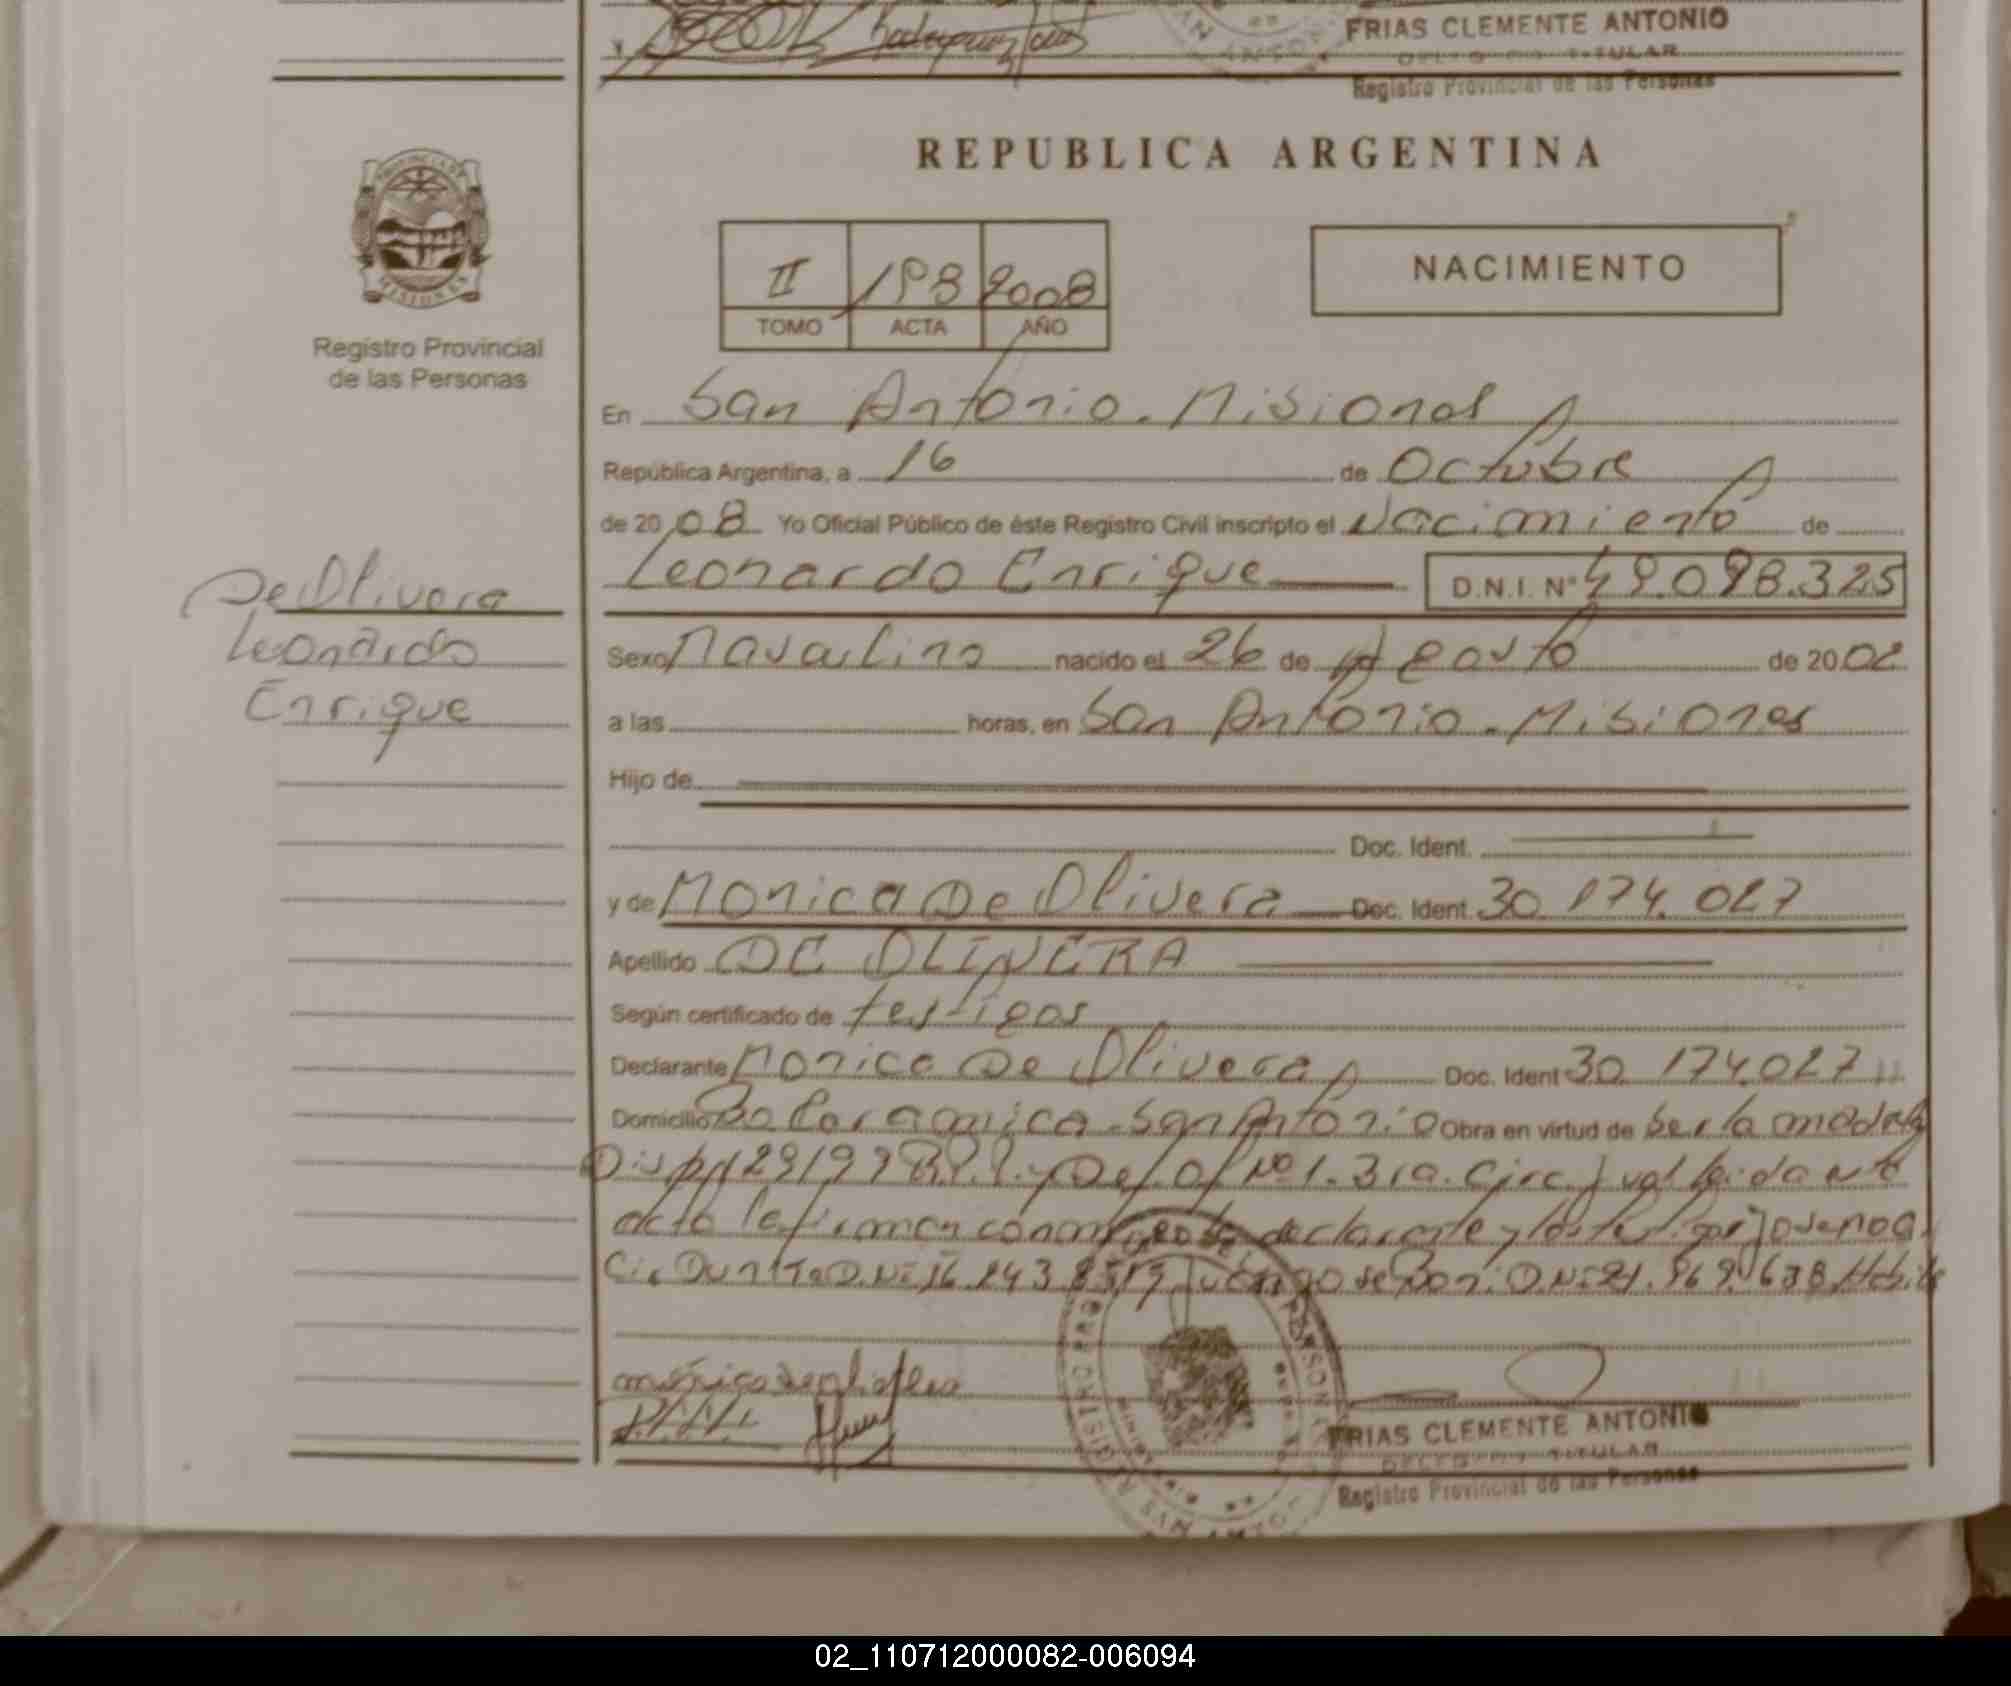 FRIAS CLEMENTE ANTONIO
TITULAR
Registro Provincial de las Personas
REPUBLICA ARGENTINA
PROVINCIA DE
MISIONES
Registro Provincial
de las Personas
II 198 2008
TOMO ACTA AÑO
NACIMIENTO
En San Antonio. Misiones
República Argentina, a 16 de Octubre
de 20 08 Yo Oficial Público de éste Registro Civil inscripto el Nacimiento de
Leonardo Enrique D.N.I. N° 49.098.325
De Olivera
Leonardo
Enrique
Sexo Masculino nacido el 26 de Agosto de 20 02
a las horas, en San Antonio. Misiones
Hijo de
Doc. Ident.
y de Monica De Olivera Doc. Ident. 30 174.027
Apellido DE OLIVERA
Según certificado de testigos
Declarante Monica De Olivera Doc. Ident 30. 174.027
Domicilio San Antonio Obra en virtud de Ser la madre
Disp. 1229/99 y Def. Of Nº 1. 3ra. Circ. J
acta la firman conmigo la declarante y los testigos
FRIAS CLEMENTE ANTONIO
DELEGADO TITULAR
Registro Provincial de las Personas
02_110712000082-006094